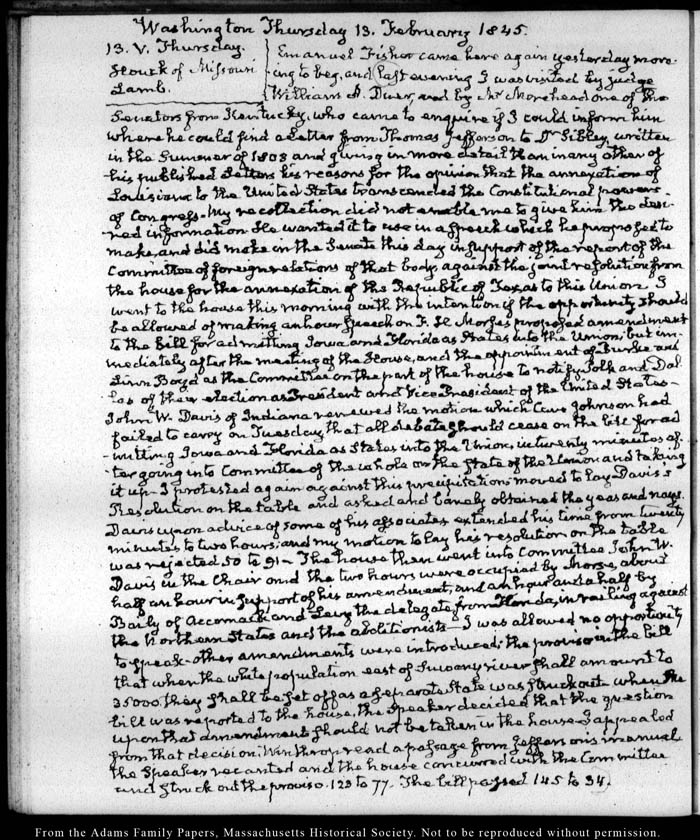 Washington Thursday 13. February 1845.
13. V. Thursday.
Houck of Missouri
Lamb.
Emanuel Fisher came here again yesterday morn-
ing to beg, and last evening I was visited by judge
William A. Duer, and by Mr Morehead one of the
Senators from Kentucky, who came to enquire if I could inform him
where he could find a Letter from Thomas Jefferson to Dr Sibley, written
in the Summer of 1803 and giving in more detail than in any other of
his published Letters his reasons for the opinion that the annexation of
Louisiana to the United States transcended the Constitutional powers
of Congress. My recollection did not enable me to give him the desi-
red information. He wanted it to use in a speech which he proposed to
make, and did make in the Senate this day in support of the report of the
Committee of foreign relations of that body against the joint resolution from
the house for the annexation of the Republic of Texas to this Union. I
went to the house this morning with the intention if the opportunity should
be allowed of making an hour speech on F. H. Morse's proposed amendment
to the Bill for admitting Iowa and Florida as States into the Union; but im-
mediately after the meeting of the House, and the appointment of Burke and
Linn Boyd as the Committee on the part of the house to notify Polk and Dal-
las of their election as President and Vice President of the United States—
John W. Davis of Indiana renewed the motion which Cave Johnson had
failed to carry on Tuesday, that all debate should cease on the bill for ad
mitting Iowa and Florida as States into the Union, in twenty minutes af-
ter going into Committee of the whole on the State of the Union and taking
it up— I protested again against this precipitation moved to lay Davis's
Resolution on the table and asked and barely obtained the yeas and nays.
Davis upon advice of some of his associates extended his time from twenty
minutes to two hours; and my motion to lay his resolution on the table
was rejected 50 to 91— The house then went into Committee John W.
Davis in the Chair and the two hours were occupied by Morse, about
half an hour in support of his amendment, and an hour and a half by
Baily of Accomack and Levy the delegate from Florida, in railing against
the Northern States and the abolitionists— I was allowed no opportunity
to speak— other amendments were introduced; the proviso in the bill
that when the white population east of Suwany river shall amount to
35000 they shall be set off as a separate State was struck out— when the
bill was reported to the house, the Speaker decided that the question
upon that amendment should not be taken in the house— I appealed
from that decision. Winthrop read a passage from Jefferson's manual
the Speaker recanted and the house concurred with the Committee
and struck out the proviso. 123 to 77. The bill passed 145 to 34.
From the Adams Family Papers, Massachusetts Historical Society. Not to be reproduced without permission.